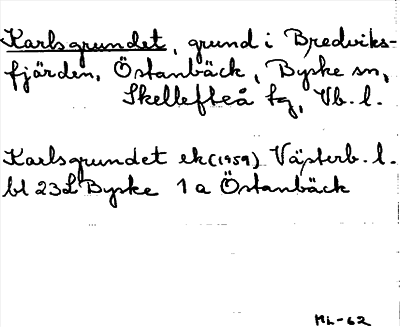 Karlsgrundet, grund i Bredviks-
fjärden, Östanbäck, Byske sn,
Skellefteå tg, Vb. l.
Karlsgrundet ek (1959) Västerb. l.
bl 23L Byske 1a Östanbäck
ML-62